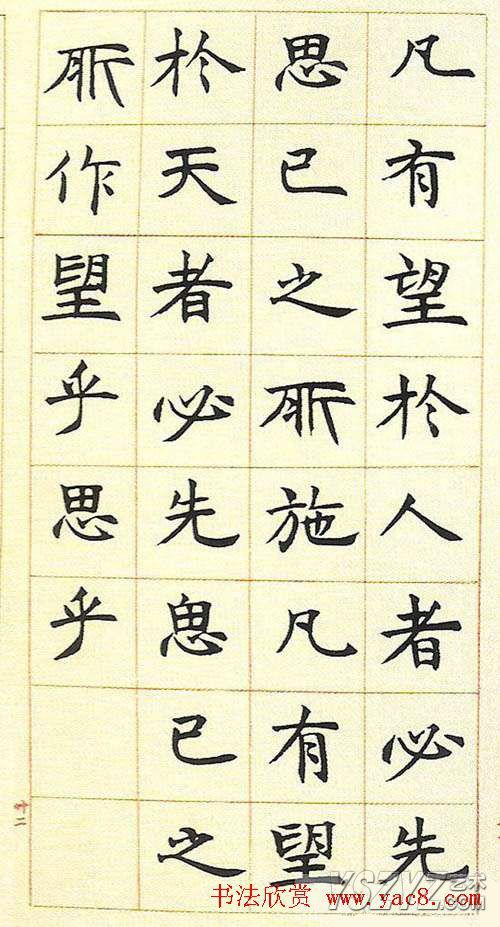 凡有望於人者必先
思已之所施凡有望
於天者必先思已之
所作望乎思乎
十二
书法欣赏 www.yac8.com